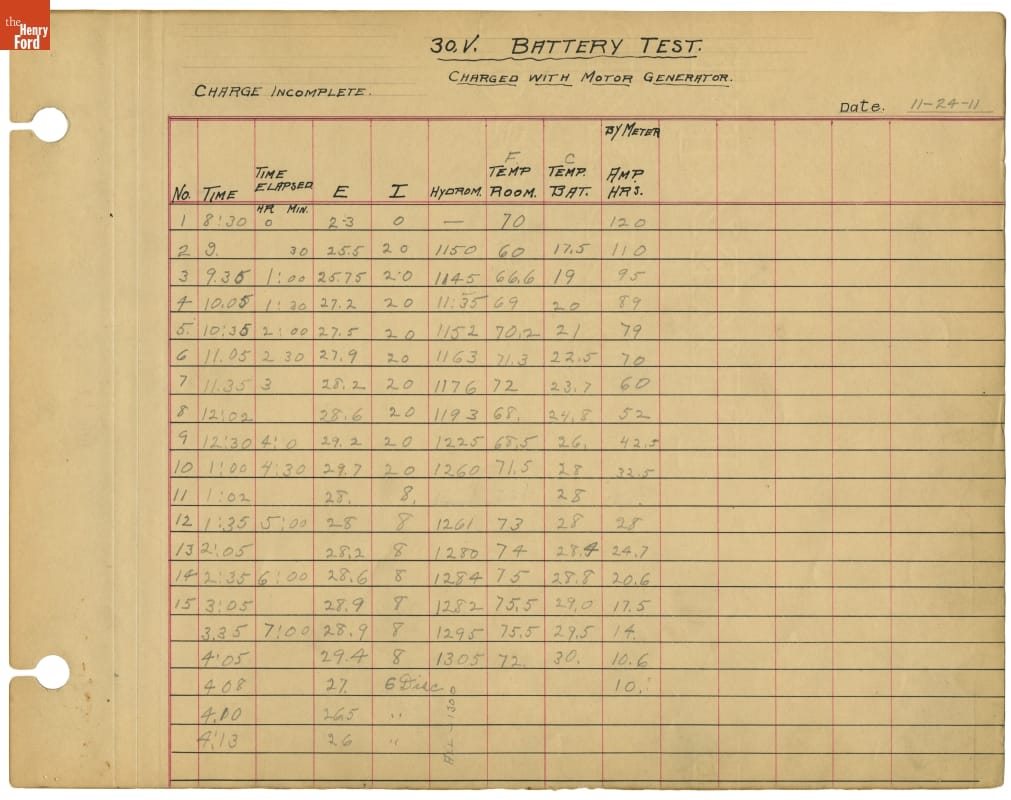 the
Henry
Ford
30.V. BATTERY TEST.
CHARGED WITH MOTOR GENERATOR.
CHARGE INCOMPLETE.
Date. 11-24-11
BY METER
No. TIME TIME ELAPSED E I HYDROM. F. TEMP ROOM. C TEMP. BAT. AMP. HRS.
HR MIN.
1 8:30 0 2-3 0 — 70 120
2 9. 30 25.5 20 1150 60 17.5 110
3 9.35 1:00 25.75 20 1145 66.6 19 95
4 10.05 1:30 27.2 20 11:35 69 20 89
5. 10:35 2:00 27.5 20 1152 70.2 21 79
6 11.05 2 30 27.9 20 1163 71.3 22.5 70
7 11.35 3 28.2 20 1176 72 23.7 60
8 12:02 28.6 20 1193 68. 24.8 52
9 12:30 4:0 29.2 20 1225 68.5 26. 42.5
10 1:00 4:30 29.7 20 1260 71.5 28 32.5
11 1:02 28. 8. 28
12 1:35 5:00 28 8 1261 73 28 28
13 2:05 28.2 8 1280 74 28.4 24.7
14 2:35 6:00 28.6 8 1284 75 28.8 20.6
15 3:05 28.9 8 1282 75.5 29.0 17.5
3.35 7:00 28.9 8 1295 75.5 29.5 14.
4:05 29.4 8 1305 72. 30. 10.6
4 08 27. 6 Disc. 10.
4.10 26.5 "
4.13 26 "
ALL - 1300